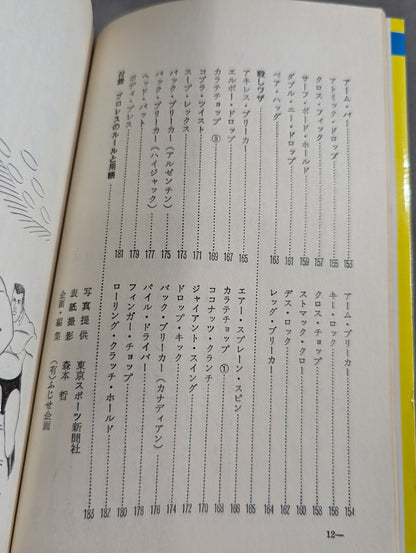 アーム・バー 153
アーム・ブリーカー 154
アトミック・ドロップ 155
キー・ロック 156
クロス・フィック 157
クロス・チョップ 158
サーフ・ボード・ホールド 159
ストマック・クロー 160
ダブル・ニー・ドロップ 161
デス・ロック 162
ベア・ハッグ 163
レッグ・ブリーカー 164
殺しワザ
アキレス・ブリーカー 165
エアー・スプレーン・スピン 166
エルボー・ドロップ 167
カラテチョップ① 168
カラテチョップ③ 169
ココナッツ・クランチ 170
コブラ・ツイスト 171
ジャイアント・スイング 172
スープ・レックス 173
ドロップ・キック 174
バック・ブリーカー(アルゼンチン) 175
バック・ブリーカー(カナディアン) 176
バック・ブリーカー(ハイジャック) 177
パイル・ドライバー 178
ヘッド・バット 179
フィンガー・チョップ 180
ボディ・プレス 181
ローリング・クラッチ・ホールド 182
付録 プロレスのルールと用語 183
写真提供 東京スポーツ新聞社
表紙撮影 森本 哲
企画・編集 (有)ふじせ企画
12—